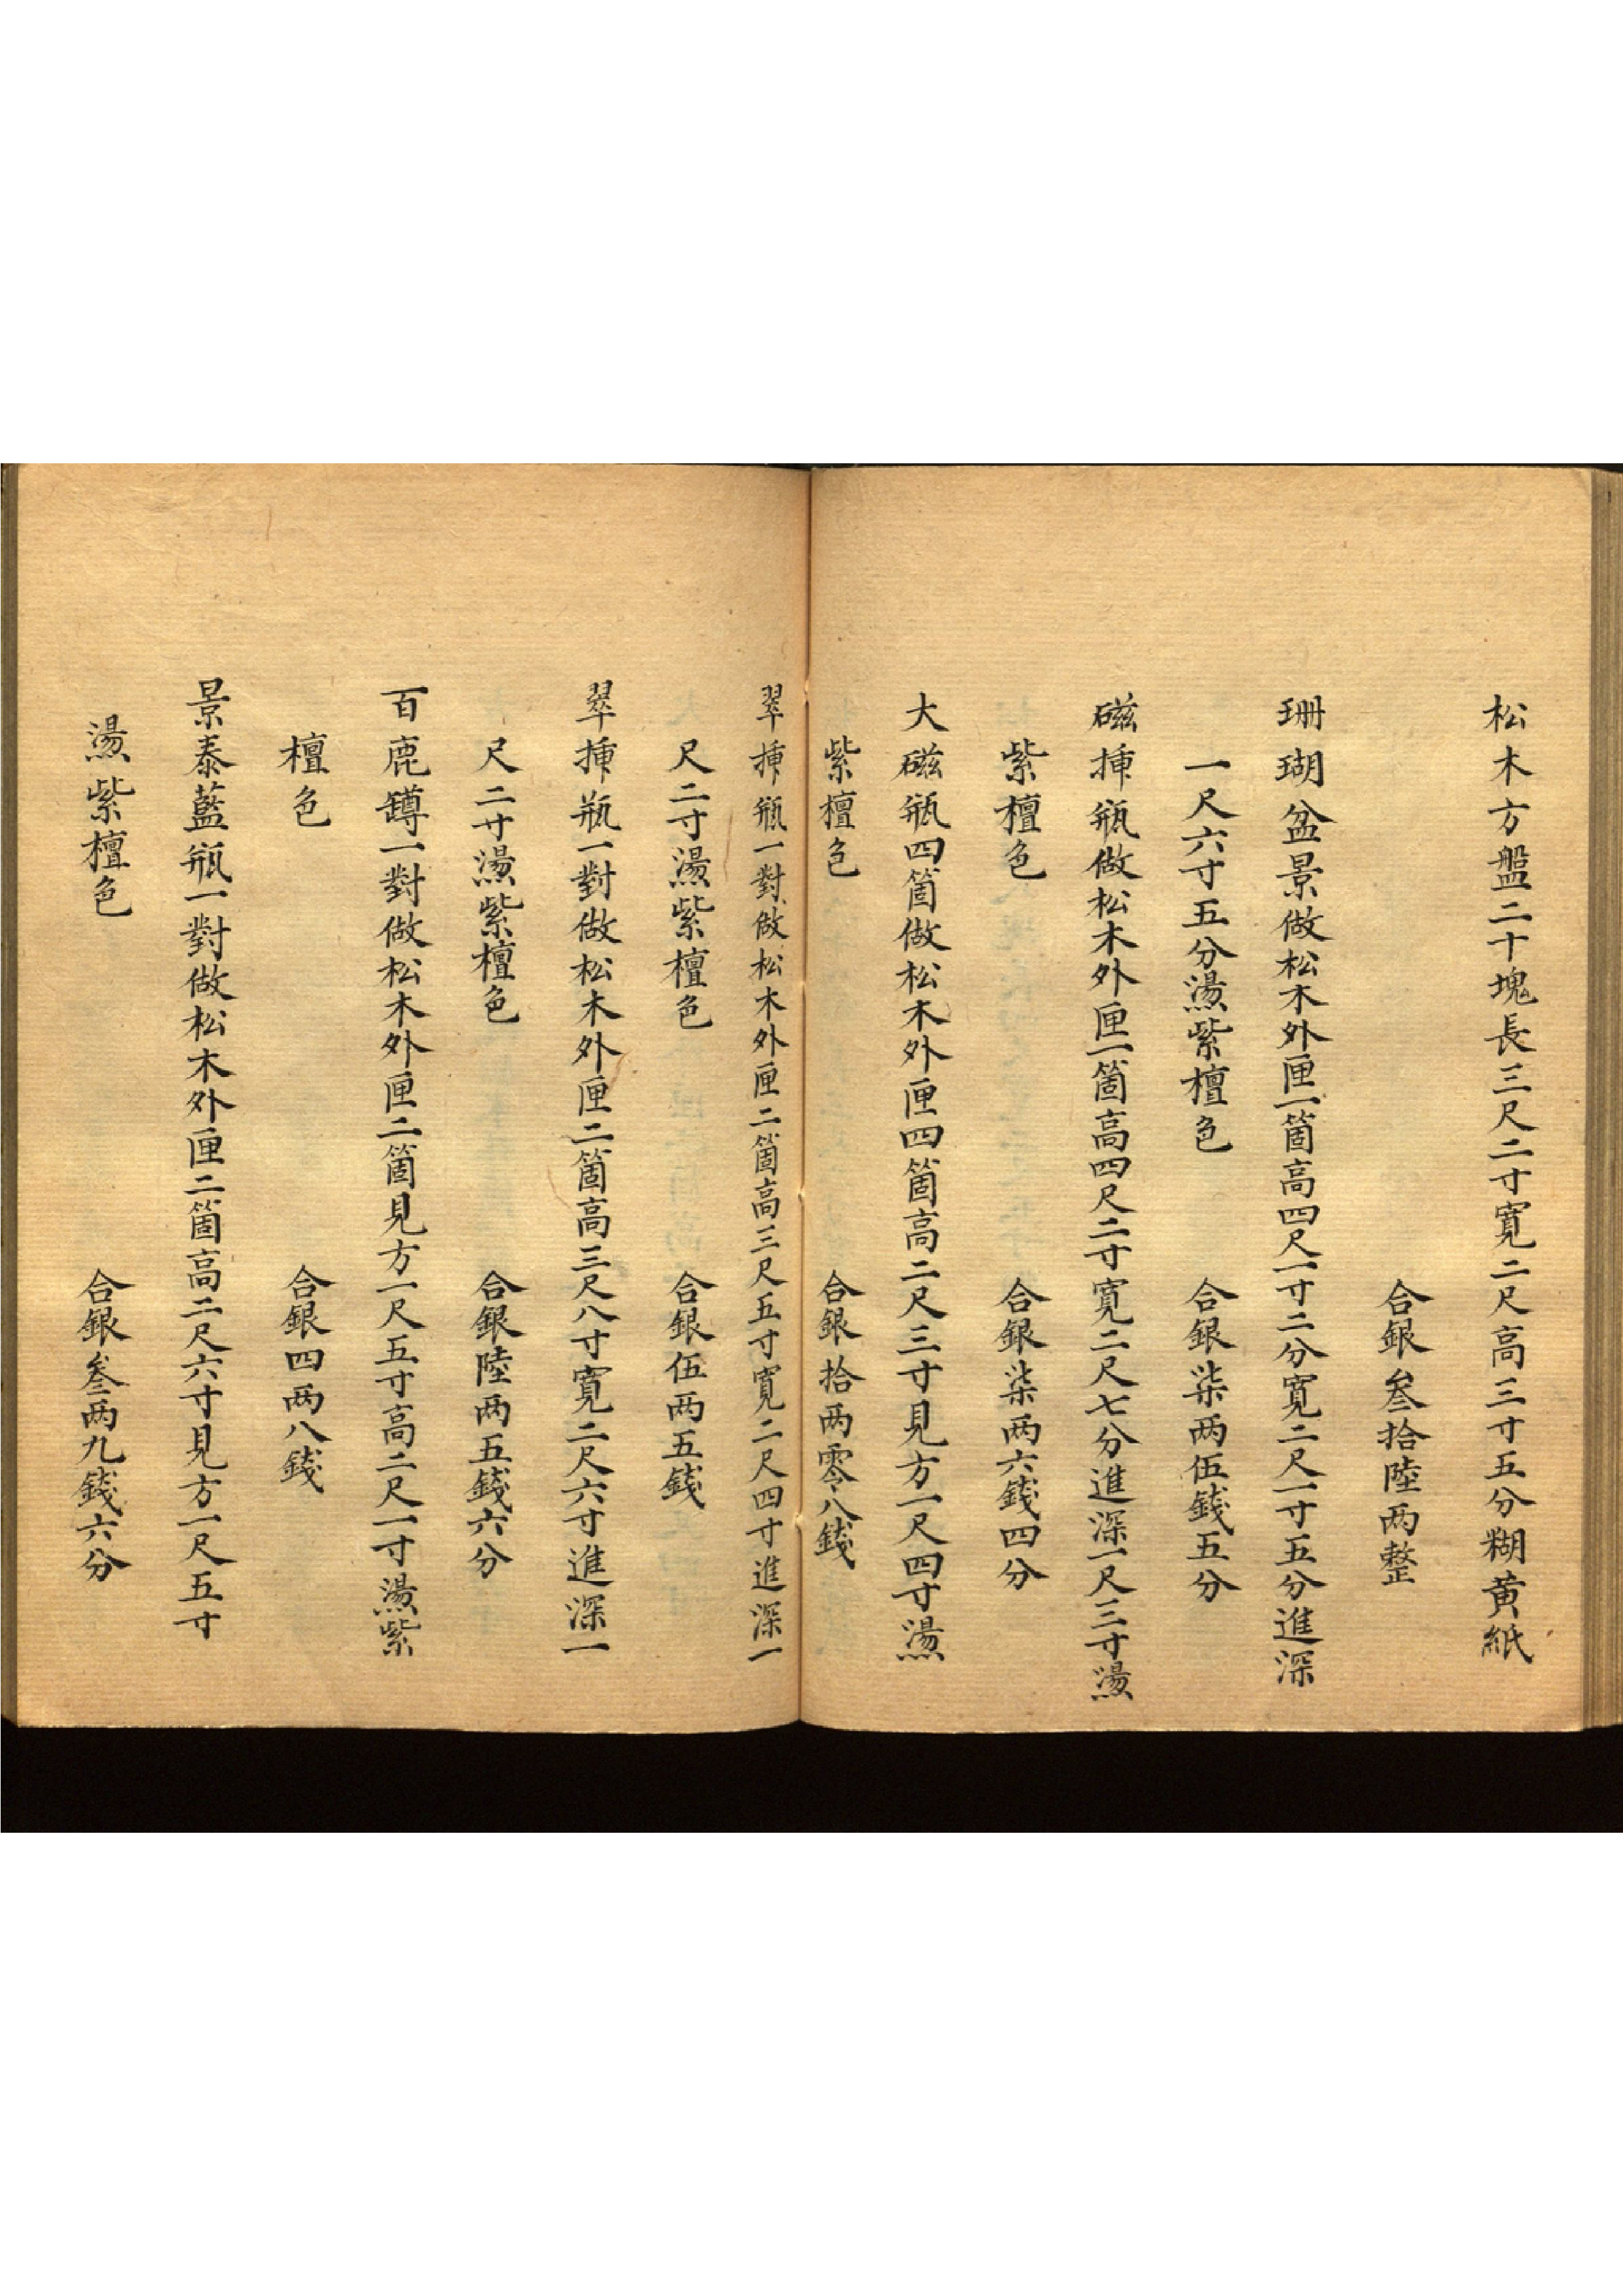 松木方盤二十塊長三尺二寸寬二尺高三寸五分糊黄紙
合銀叁拾陸两整
珊瑚盆景做松木外匣一箇高四尺一寸二分寬二尺一寸五分進深
一尺六寸五分燙紫檀色 合銀柒两伍錢五分
磁揷瓶做松木外匣一箇高四尺二寸寬二尺七分進深一尺三寸燙
紫檀色 合銀柒两六錢四分
大磁瓶四箇做松木外匣四箇高二尺三寸見方一尺四寸燙
紫檀色 合銀拾两零八錢
翠揷瓶一對做松木外匣二箇高三尺五寸寬二尺四寸進深一
尺二寸燙紫檀色 合銀伍两五錢
翠揷瓶一對做松木外匣二箇高三尺八寸寬二尺六寸進深一
尺二寸燙紫檀色 合銀陸两五錢六分
百鹿罇一對做松木外匣二箇見方一尺五寸高二尺一寸燙紫
檀色 合銀四两八錢
景泰藍瓶一對做松木外匣二箇高二尺六寸見方一尺五寸
燙紫檀色 合銀叁两九錢六分